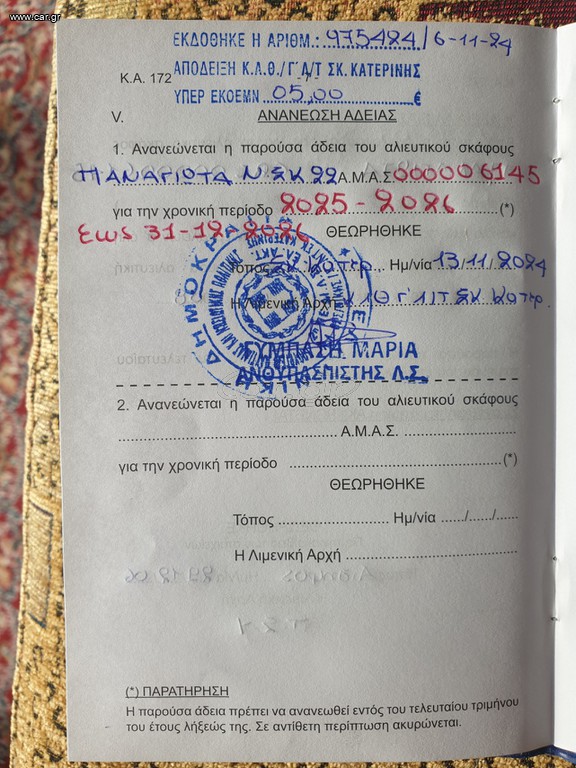 www.car.gr
ΕΚΔΟΘΗΚΕ Η ΑΡΙΘΜ.: 975424/6-11-24
Κ.Α. 172 ΑΠΟΔΕΙΞΗ Κ.Λ.Θ./Γ΄Δ/Τ ΣΚ. ΚΑΤΕΡΙΝΗΣ
ΥΠΕΡ ΕΚΟΕΜΝ ...05,00...€
V. ΑΝΑΝΕΩΣΗ ΑΔΕΙΑΣ
1. Ανανεώνεται η παρούσα άδεια του αλιευτικού σκάφους
ΠΑΝΑΓΙΩΤΑ Ν.ΣΚ 22 Α.Μ.Α.Σ 000006145
για την χρονική περίοδο 2025 - 2026 (*)
Εως 31-12-2026 ΘΕΩΡΗΘΗΚΕ
Τόπος Σκ. Κατερ. Ημ/νία 13/11/2024
Η Λιμενική Αρχή
ΓΥΜΠΑΣΗ ΜΑΡΙΑ
ΑΝΘΥΠΑΣΠΙΣΤΗΣ Λ.Σ.
2. Ανανεώνεται η παρούσα άδεια του αλιευτικού σκάφους
Α.Μ.Α.Σ.
για την χρονική περίοδο (*)
ΘΕΩΡΗΘΗΚΕ
Τόπος Ημ/νία ....../....../......
Η Λιμενική Αρχή
(*) ΠΑΡΑΤΗΡΗΣΗ
Η παρούσα άδεια πρέπει να ανανεωθεί εντός του τελευταίου τριμήνου
του έτους λήξεώς της. Σε αντίθετη περίπτωση ακυρώνεται.